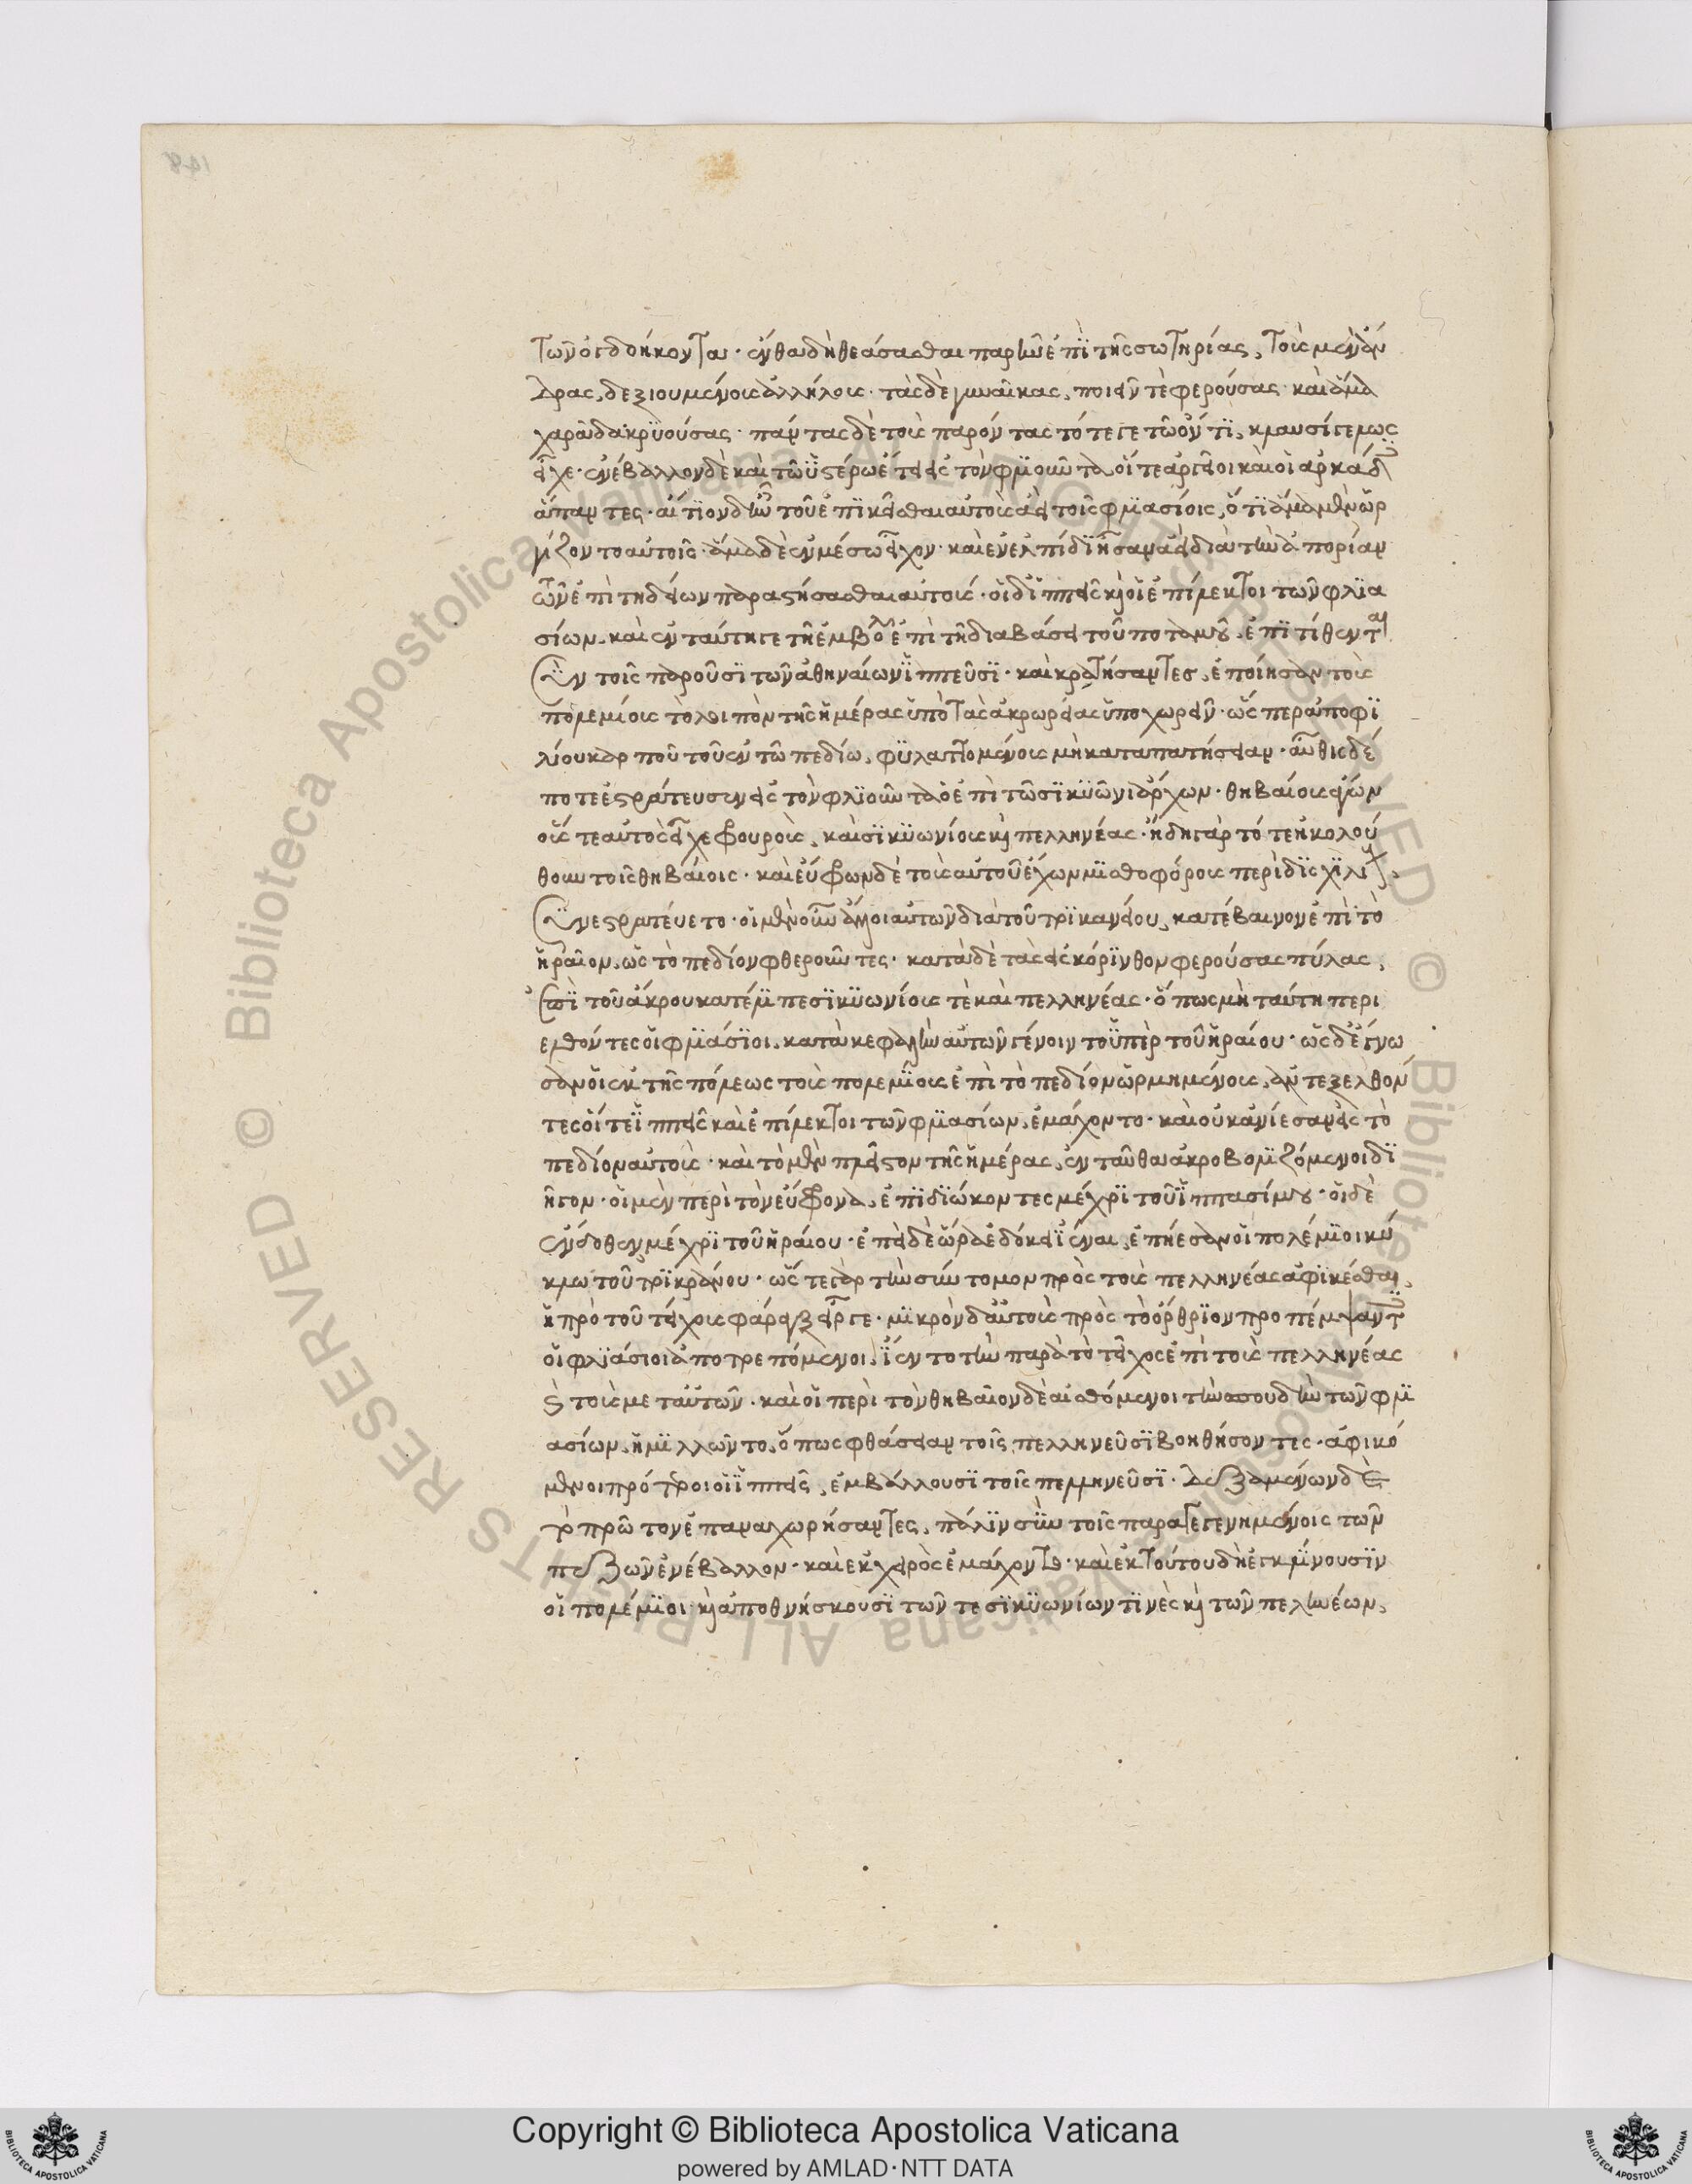 των ὀγδοήκοντα· ἔνθα δὴ θεάσασθαι παρῆν ἐπὶ τῆς σωτηρίας, τοὺς μὲν ἄν
δρας, δεξιουμένους ἀλλήλους· τὰς δὲ γυναῖκας, πιεῖν τὲ φερούσας· καὶ ἅμα
χαρᾶ δακρϋούσας· πάντας δὲ τοὺς παρόντας τότε γε τῶ ὄντϊ, κλαυσίγελως
εἶχε· ἐνέβαλλον δὲ καὶ τῶ ὑστέρω ἔτει εἰς τὸν φλϊοῦντα οἵ τε ἀργεῖοι καὶ οἱ ἀρκάδες
ἅπαντες· αἴτϊον δ' ἦν τοῦ ἐπϊκεῖσθαι αὐτοὺς ἀεὶ τοῖς φλϊασίοις, ὅτϊ ἅμα μὲν ὠρ
γίζοντο αὐτοῖς· ἅμα δὲ ἐν μέσω εἶχον· καὶ ἐν ἐλπίδϊ ἦσαν ἀεὶ διὰ τὴν ἀπορίαν
ὧν ἐπὶτηδείων παραστήσασθαι αὐτούς· οἱ δ' ἱππεῖς καὶ οἱ ἐπίλεκτοι τῶν φλϊα
σίων. καὶ ἐν ταύτη γε τῆ ἐμβολῆ ἐπὶ τῆ διαβάσει τοῦ ποταμοῦ, ἐπϊτίθενται
σὺν τοῖς παροῦσϊ τῶν ἀθηναίων ἱππεῦσϊ· καὶ κρατήσαντες, ἐποίησαν τοὺς
πολεμίους τὸ λοιπὸν τῆς ἡμέρας ὑπὸ τὰς ἀκρωρείας ὑποχωρεῖν· ὥσπερ ἀπὸ φϊ
λίου καρποῦ τοῦ ἐν τῶ πεδίω, φϋλαττομένους μὴ καταπατήσειαν· αὖθις δέ
ποτε ἐστράτευσεν εἰς τὸν φλϊοῦντα ὁ ἐπὶ τῶ σϊκϋῶνι ἄρχων· θηβαίους ἔχων
οὕς τε αὐτὸς εἶχε φρουρούς, καὶ σϊκϋωνίους καὶ πελληνέας· ἤδη γὰρ τότε ἠκολού
θουν τοῖς θηβαίοις· καὶ εὔφρων δὲ τοὺς αὑτοῦ ἔχων μϊσθοφόρους περὶ δϊσχϊλίους,
συνεστρατεύετο· οἱ μὲν οὖν ἄλλοι αὐτῶν διὰ τοῦ τρϊκανείου, κατέβαινον ἐπὶ τὸ
ἡραῖον, ὡς τὸ πεδίον φθεροῦντες· κατὰ δὲ τὰς εἰς κόρϊνθον φερούσας πύλας,
ἐπὶ τοῦ ἄκρου κατέλϊπε σϊκϋωνίους τὲ καὶ πελληνέας· ὅπως μὴ ταύτη περι
ελθόντες οἱ φλϊάσϊοι, κατὰ κεφαλὴν αὐτῶν γένοιντο ὑπὲρ τοῦ ἡραίου· ὡς δ' ἔγνω
σαν οἱ ἐκ τῆς πόλεως τοὺς πολεμϊους ἐπὶ τὸ πεδίον ὡρμημένους, ἀντεξελθόν
τες οἵ τε ἱππεῖς καὶ ἐπίλεκτοι τῶν φλϊασίων, ἐμάχοντο· καὶ οὐκ ἀνίεσαν εἰς τὸ
πεδίον αὐτούς· καὶ τὸ μὲν πλεῖστον τῆς ἡμέρας, ἐνταῦθα ἀκροβολϊζόμενοι δϊ
ῆγον· οἱ μὲν περὶ τὸν εὔφρονα, ἐπϊδϊώκοντες μέχρϊ τοῦ ἱππασίμου· οἱ δὲ
ἔνδοθεν μέχρϊ τοῦ ἡραίου· ἐπεὶ δὲ ὥρα ἐδόκει ἰέναι, ἐπήεσαν οἱ πολέμϊοι κύ
κλω τοῦ τρϊκράνου· ὥστε γὰρ τὴν σύντομον πρὸς τοὺς πελληνέας ἀφϊκέσθαι,
ἡ πρὸ τοῦ τείχους φάραγξ εἶργε· μϊκρὸν δ' αὐτοὺς πρὸς τὸ ὄρθρϊον προπέμψαντες
οἱ φλϊάσιοι ἀποτρεπόμενοι, ἵεντο τὴν παρὰ τὸ τεῖχος ἐπὶ τοὺς πελληνέας
καὶ τοὺς μετ' αὐτῶν. καὶ οἱ περὶ τὸν θηβαῖον δὲ αἰσθόμενοι τὴν σπουδὴν τῶν φλϊ
ασίων, ἡμϊλλῶντο, ὅπως φθάσειαν τοῖς πελληνεῦσϊ βοηθήσοντες· ἀφικό
μενοι πρότεροι οἱ ἱππεῖς, ἐμβάλλουσϊ τοῖς πελληνεῦσϊ· δεξαμένων δὲ
τὸ πρῶτον ἐπαναχωρήσαντες, πάλϊν σὺν τοῖς παραγεγενημένοις τῶν
πεζῶν ἐνέβαλλον· καὶ ἐκ χειρὸς ἐμάχοντο· καὶ ἐκ τούτου δὴ ἐγκλϊνουσϊν
οἱ πολέμϊοι καὶ ἀποθνήσκουσϊ τῶν τε σϊκϋωνίων τϊνὲς καὶ τῶν πεληνέων,
Copyright © Biblioteca Apostolica Vaticana
powered by AMLAD·NTT DATA